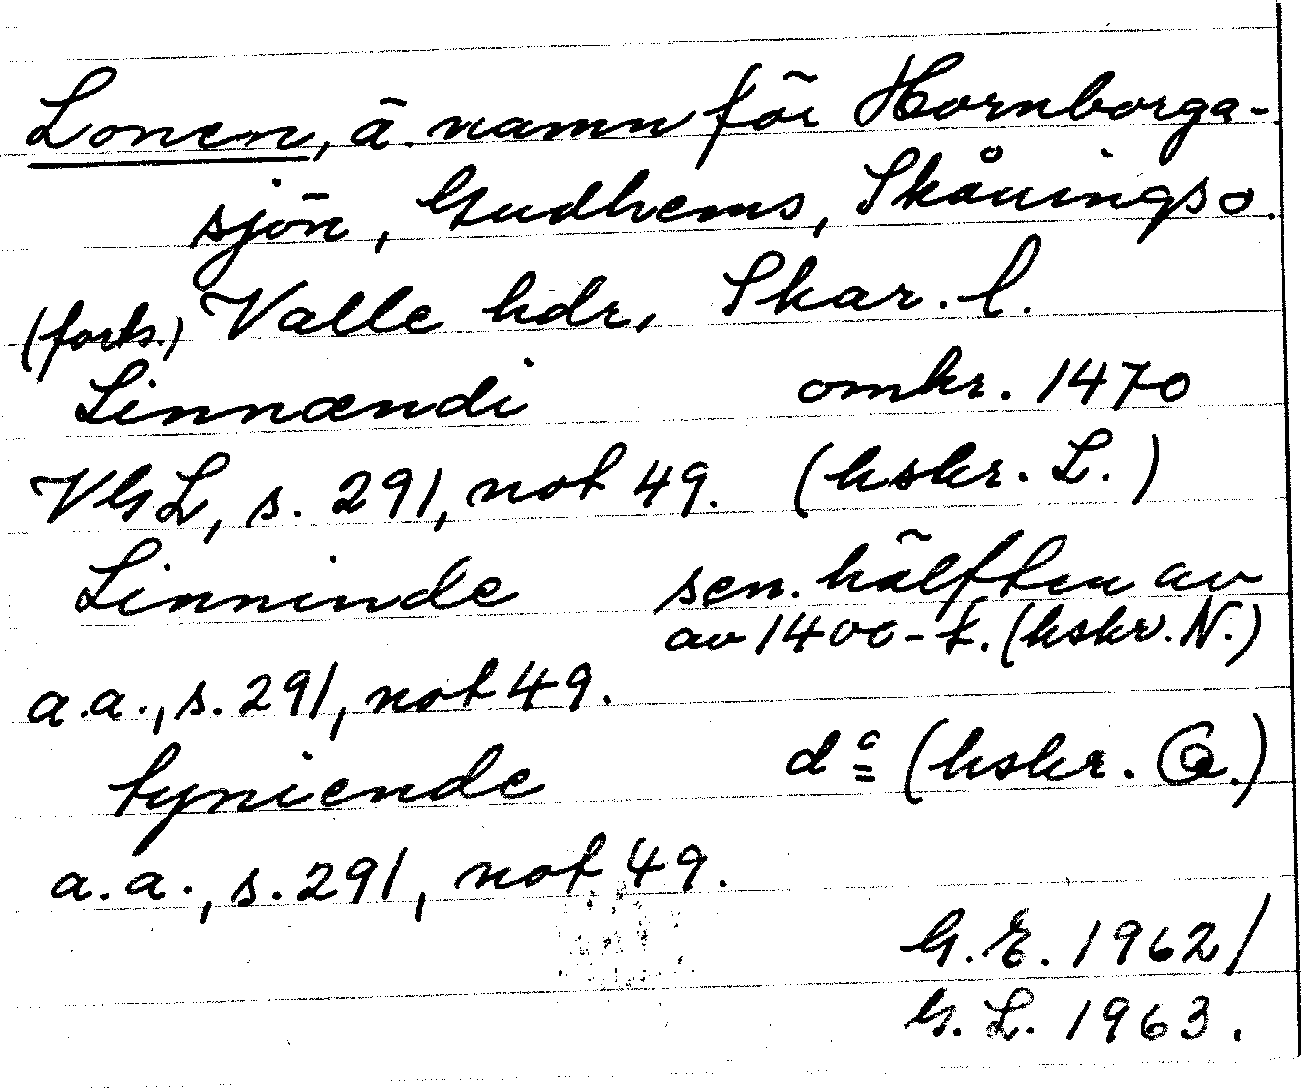 Lonen, ä. namn för Hornborga-
sjön, Gudhems, Skånings o.
(forts.) Valle hdr, Skar. l.
Linnændi omkr. 1470
VGL, s. 291, not 49. (hskr. L.)
Linninde sen. hälften av
av 1400-t. (hskr. N.)
a.a., s. 291, not 49.
tyniende do (hskr. Q.)
a.a., s. 291, not 49.
G.E. 1962/
G.L. 1963.